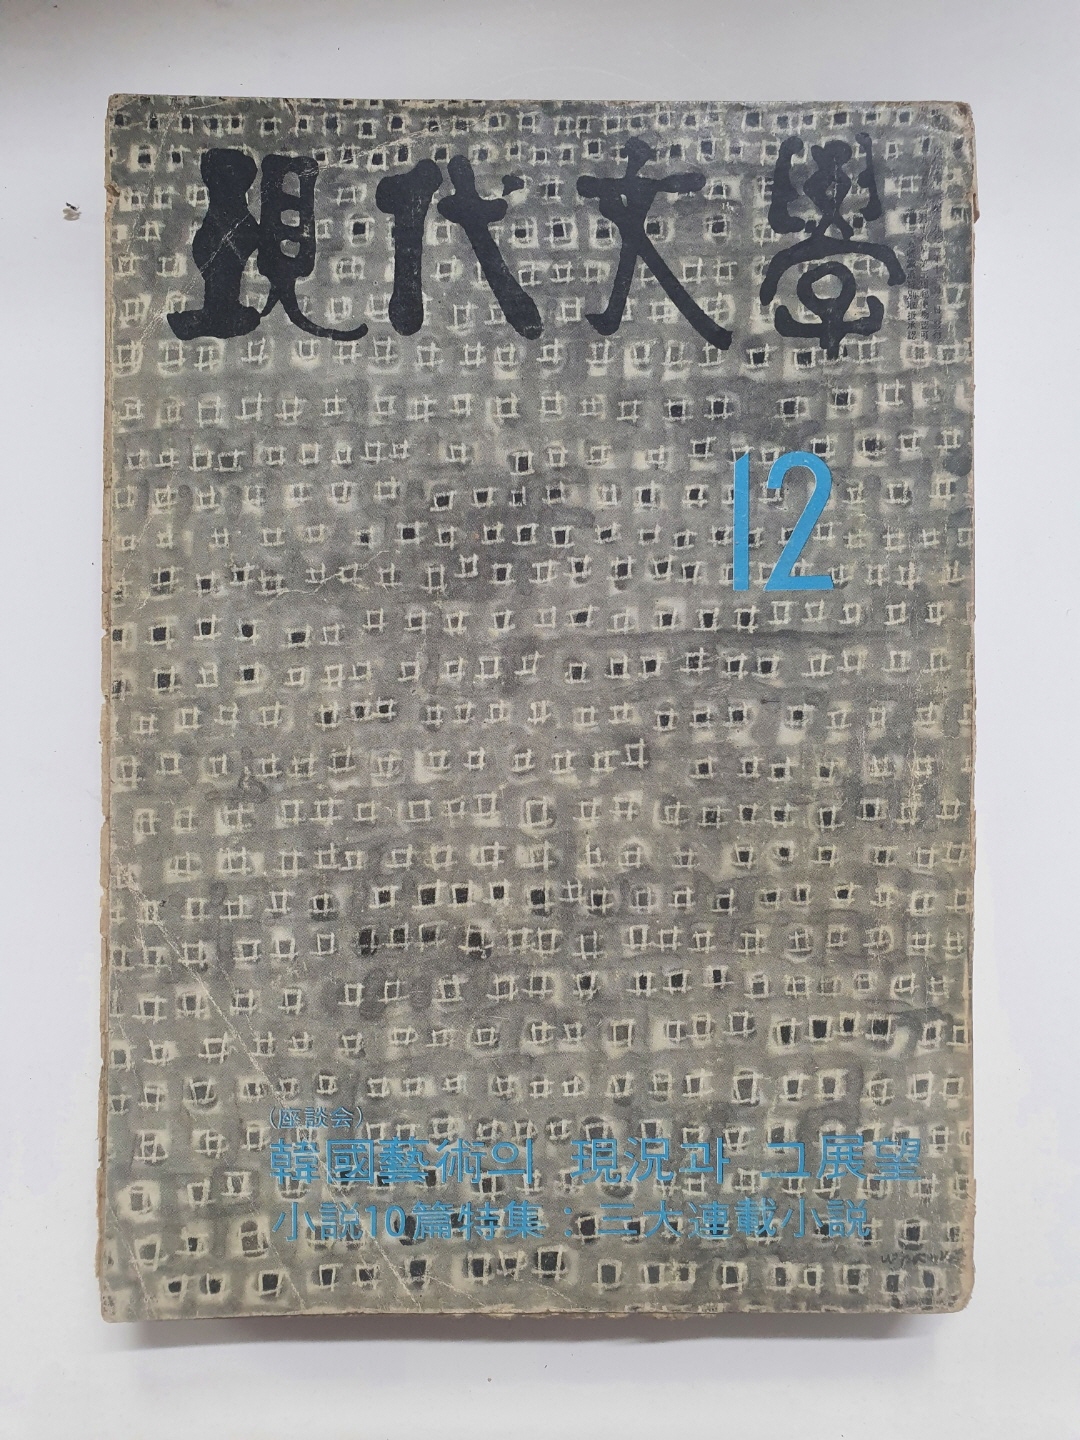 現代文學
12
(座談会)
韓國藝術의 現況과 그 展望
小説10篇特集 : 三大連載小説
whanki